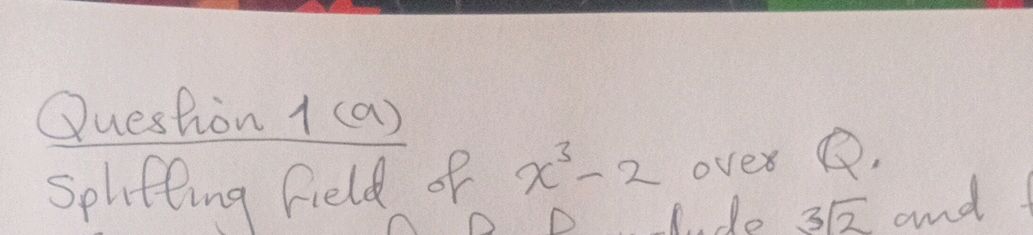 Question 1 (a)
Splitting field of x³-2 over Q.
∛2 and